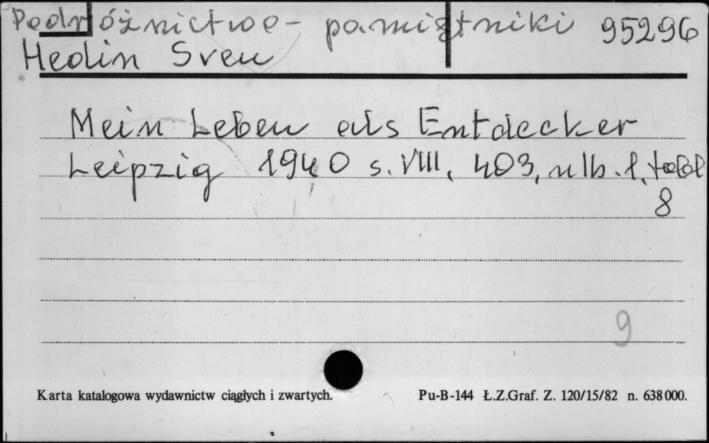 Podróżnictwo - pamiętniki 95296
Hedin Sven
Mein Leben als Entdecker
Leipzig 1940 s. VIII, 403, nlb. 1, tabl
8
9
Karta katalogowa wydawnictw ciągłych i zwartych. Pu-B-144 Ł.Z.Graf. Z. 120/15/82 n. 638000.